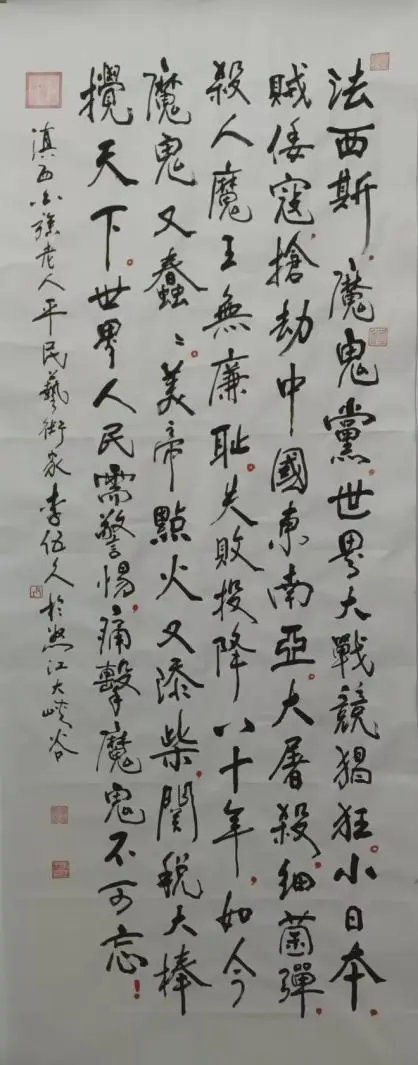 法西斯，魔鬼黨。世界大戰競猖狂。小日本，
賊倭寇，搶劫中國東南亞。大屠殺，細菌彈，
殺人魔王無廉耻。失敗投降八十年，如今
魔鬼又蠢〻。美帝點火又添柴，関税大棒
攪天下。世界人民需警惕，痛擊魔鬼不可忘！
滇西老人平民藝術家李伍久於怒江大峡谷